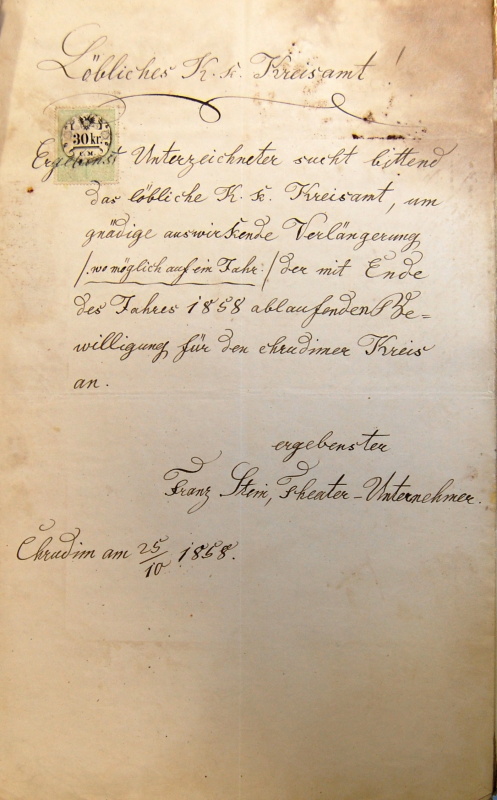 Löbliches K. k. Kreisamt!
30 kr.
C.M.
Ergebenst Unterzeichneter sucht bittend
das löbliche K. k. Kreisamt, um
gnädige auswirkende Verlängerung
/: wo möglich auf ein Jahr :/ der mit Ende
des Jahres 1858 ablaufenden Be=
willigung für den chrudimer Kreis
an.
ergebenster
Franz Stein, Theater-Unternehmer.
Chrudim am 25/10 1858.